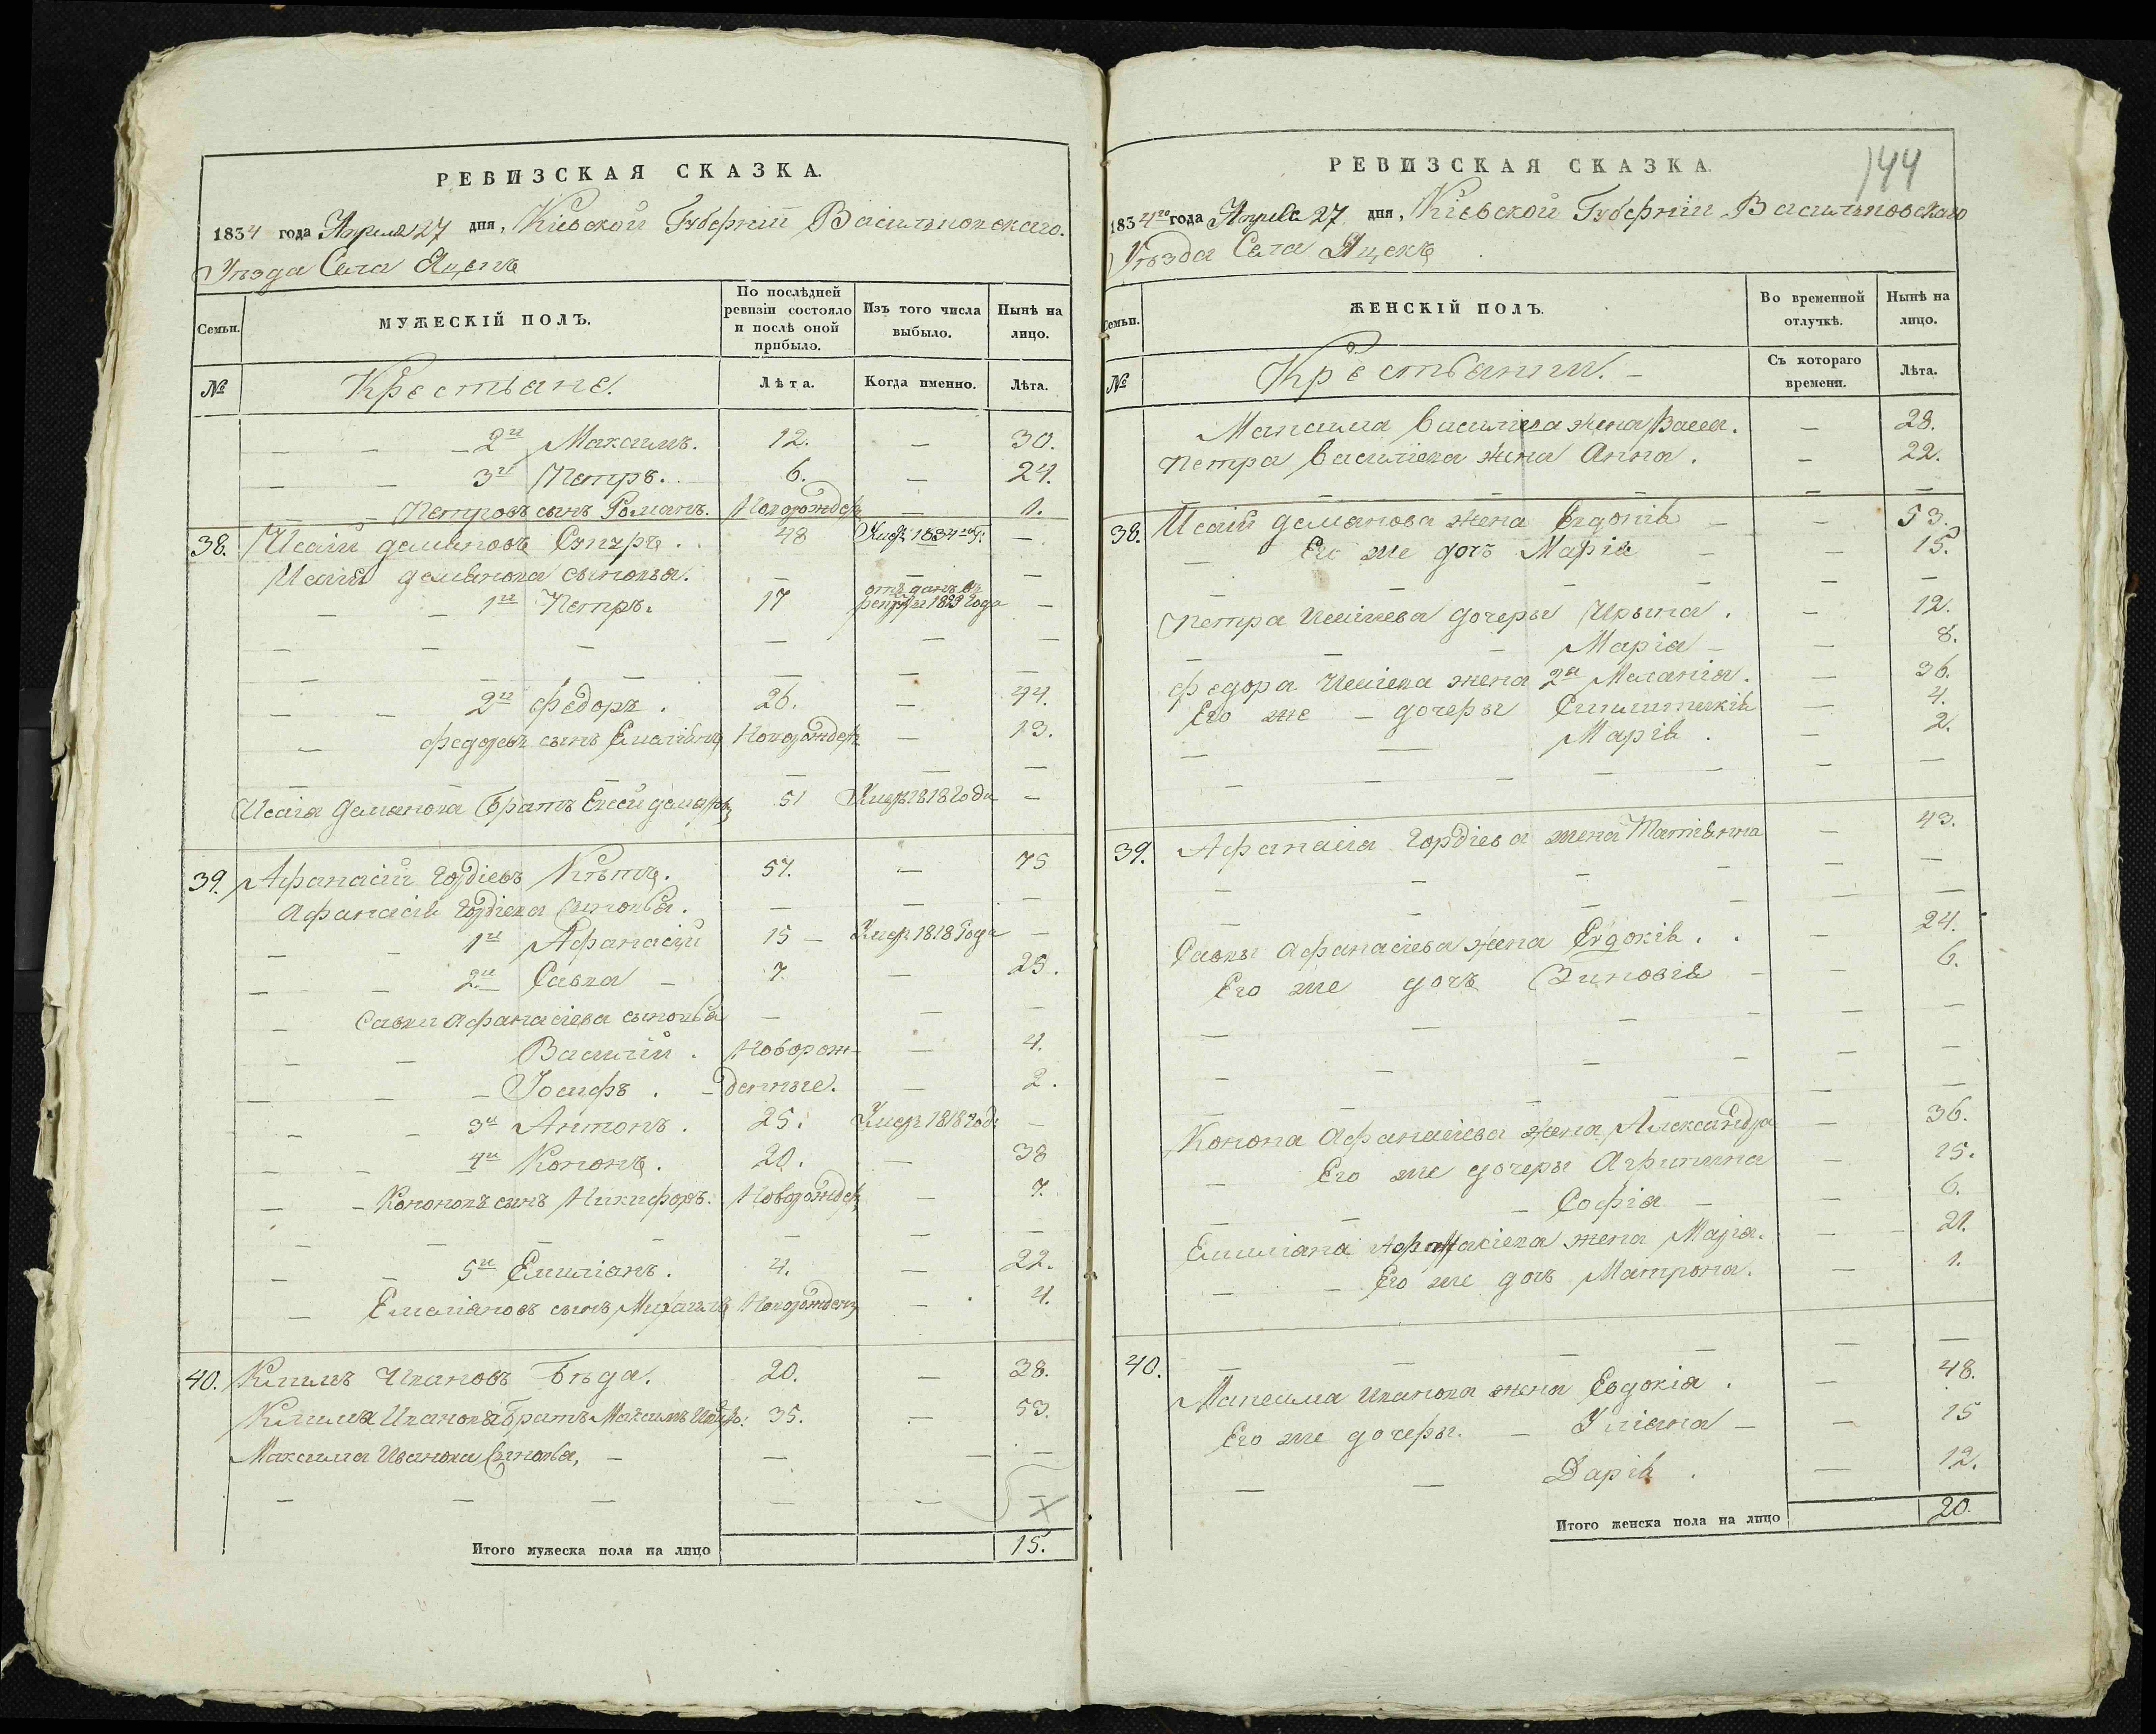 РЕВИЗСКАЯ СКАЗКА.
1834 года Апреля 27 дня, Кіевской Губерніи Васильковскаго.
Уѣзда Села Яцекъ
Семьи. МУЖЕСКІЙ ПОЛЪ. По послѣдней ревизіи состояло и послѣ оной прибыло. Изъ того числа выбыло. Нынѣ на лицо.
№ Крестьяне. Лѣта. Когда именно. Лѣта.
— — — 2й Максимъ. 12. — 30.
— — 3й Петръ. 6. — 24.
— — Петровъ сынъ Романъ. Новорожден — 1.
38. Исаій демяновъ 48 Умер: 1834го Г: —
Исаій демянова сыновья. — — —
— — 1й Петръ. 17 отъданъ въ рекруты 1829 Года —
— — — — — —
— — — — — —
— — 2й Федоръ. 26. — 44.
— Федоровъ сынъ Емаліянъ Новорожден — 13.
— — —
Исаія демянова братъ Евсей демянов 51 Умеръ 1818 Года —
39. Афанасій Гордіевъ Кѣтъ. 57. — 75
Афанасія Гордіева сыновья. — — —
— — 1й Афанасій 15 — Умер 1818 Года —
— — 2й Савка — 7. — 25.
— Савки Афанасіева сыновья — — —
— — Василій. Новорож- — 4.
— — — Іосифъ. — денные. — 2.
— — 3й Антонъ. 25. Умеръ 1818 Года —
— — 4й Кононъ. 20. — 38
— — Кононовъ сынъ Никифоръ. Новорожден — 7.
— — — — — —
— — 5й Емиліанъ. 4. — 22.
— Емиліановъ сынъ Михаилъ Новорожден — 4.
40. Климъ Ивановъ Бѣда. 20. — 38.
Клима Иванова братъ Максимъ Иванов: 35. — 53.
Максима Иванова сыновья, — — — —
— — — — — —
Итого мужеска пола на лицо 15.
РЕВИЗСКАЯ СКАЗКА. 144
1834го года Апреля 27 дня, Кіевской Губерніи Васильковскаго
Уѣзда Села Яцекъ
Семьи. ЖЕНСКІЙ ПОЛЪ. Во временной отлучкѣ. Нынѣ на лицо.
№ Крестьянки. — Съ котораго времени. Лѣта.
Максима Василіева жена Васса. — 28.
Петра Василіева жена Анна. — 22.
— — — — — —
38. Исаій демянова жена Евдокія — — 53.
— Его же дочъ Марія — — 15.
— — — — — —
Петра Исаіева дочеры Ирына. — 12.
— — — Марія — — 8.
Федора Исаіева жена 2я Меланія. — 36.
Его же — дочеры — 4.
— — Марія. — 2.
— — — — — — —
39. Афанасія Гордіева жена Татіянна — 43.
— — — — — —
— — — — — —
Савки Афанасіева жена Евдокія. — 24.
Его же дочъ Зиновія — — 6.
— — — — — —
— — — — — —
— — — — — —
Конона Афанасіева жена Александра — 36.
— Его же дочеры Агрипина — 15.
— — — Софія — — 6.
Емиліана Афанасіева жена Марія. — 21.
— — Его же дочъ Матрона. — 1.
40. — — — — — —
Максима Иванова жена Евдокія. — 48.
Его же дочеры. — Уліана — — 15
— — Дарія. — 12.
Итого женска пола на лицо 20.